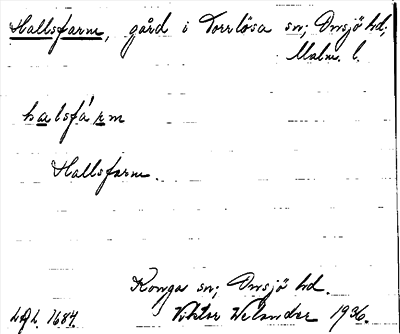 Hallsfarm, gård i Torrlösa sn; Onsjö hd;
Malm. l.
halsfárm
Hallsfarm.
Konga sn; Onsjö hd.
LAL. 1684. Viktor Welander 1936.